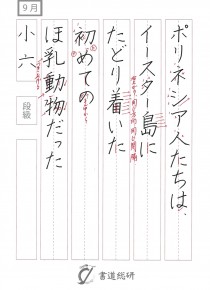 9月
ポリネシア人たちは、
イースター島に
たどり着いた
初めての
ほ乳動物だった
段級
小六
書道総研